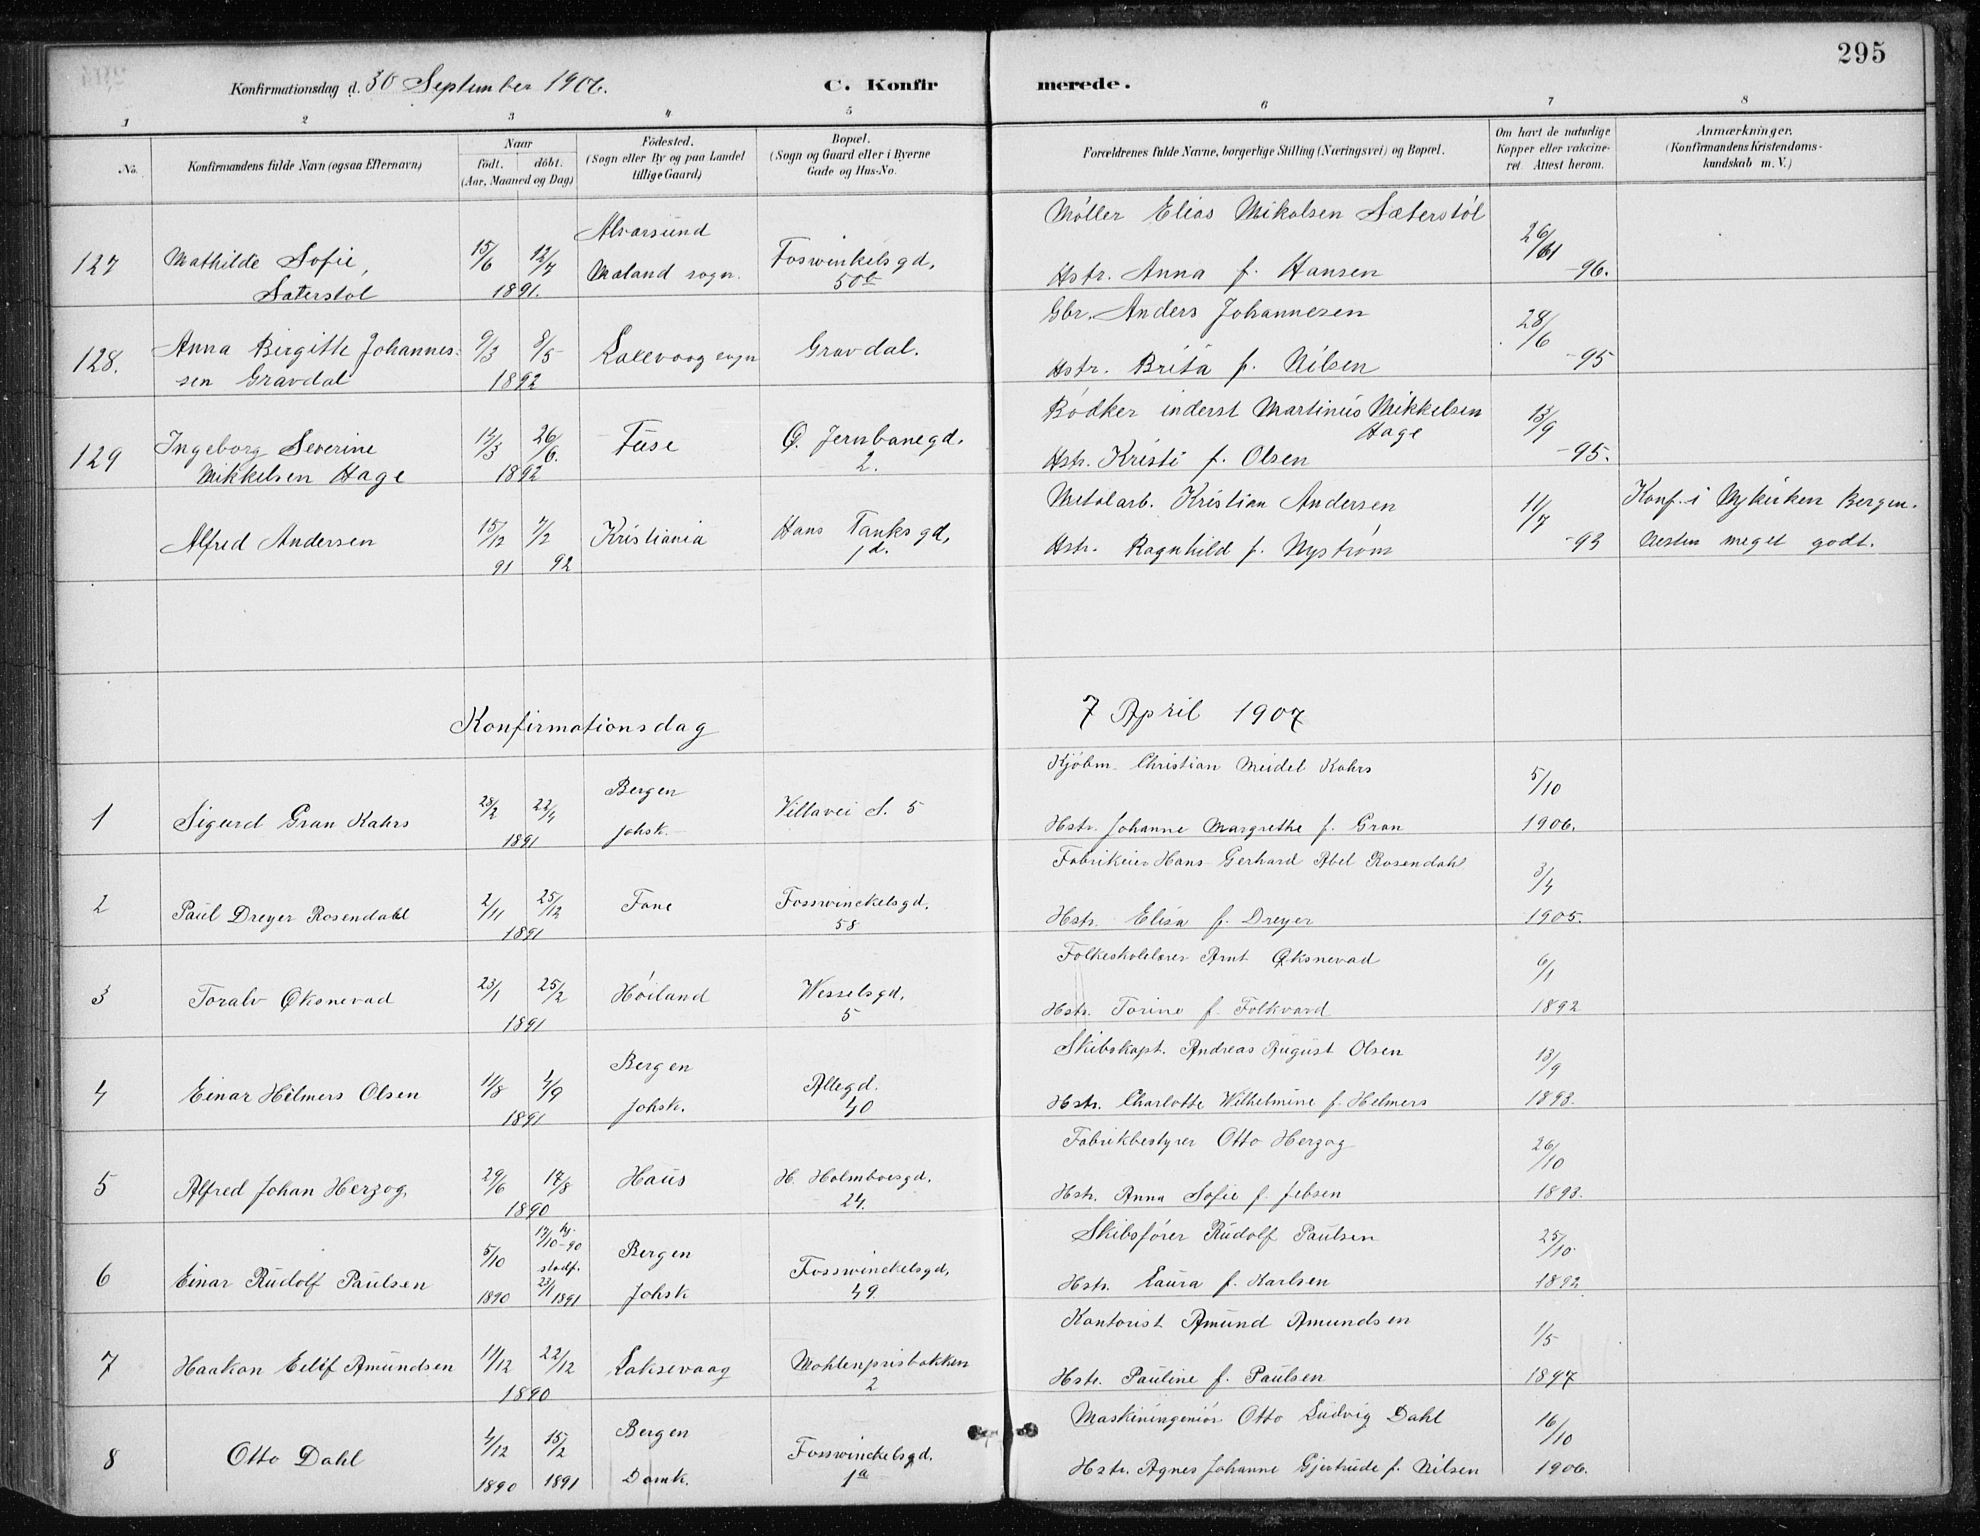 295
Konfirmationsdag d. 30 September 1906.
C. Konfir merede.
1 2 3 4 5 6 7 8
No.
Konfirmandens fulde Navn (ogsaa Efternavn)
Naar
født. døbt.
(Aar, Maaned og Dag)
Fødested.
(Sogn eller By og paa Landet
tillige Gaard)
Bopæl.
(Sogn og Gaard eller i Byerne
Gade og Hus-No.
Forældrenes fulde Navne, borgerlige Stilling (Næringsvei) og Bopæl.
Om havt de naturlige
Kopper eller vakcine-
ret. Attest herom.
Anmærkninger.
(Konfirmandens Kristendoms-
kundskab m. V.)
127 Mathilde Sofie,
Sæterstøl
15/6 12/7
1891.
Alvarsund
Mæland sogn.
Foswinkelsgd,
50b
Møller Elias Mikalsen Sæterstøl
Hstr. Anna f. Hansen
26/
-96.
128. Anna Birgithe Johannes-
sen Gravdal
9/3 8/5
1892
Laxevaag sogn
Gravdal.
Gbr. Anders Johannesen
Hstr. Brita f. Nilsen
28/6
-95
129 Ingeborg Severine
Mikkelsen Hage
13/3 26/6.
1892
Fuse
Ø. Jernbanegd.
2.
Bødker inderst Martinus Mikkelsen
Hage
Hstr. Kristi f. Olsen
13/9
-95.
Alfred Andersen
15/12 7/2
91 92
Kristiania
Hans Tanksgd,
1d.
Metalarb. Kristian Andersen
Hstr. Ragnhild f. Nystrøm
11/7
-93
Konf. i Nykirken Bergen.
Næsten meget godt.
Konfirmationsdag 7 April 1907
1 Sigurd Gran Kahrs
28/2 22/4
1891
Bergen
Johsk.
Villavei S. 5
Kjøbm. Christian Meidel Kahrs
Hstr. Johanne Margrethe f. Gran
5/10
1906.
2 Paul Dreyer Rosendahl
2/11 25/12
1891
Fane
Fosswinckelsgd.
58
Fabrikeier Hans Gerhard Abel Rosendahl
Hstr. Elisa f. Dreyer
3/4
1905.
3 Toralv Øksnevad
23/1 25/2
1891
Høiland
Wesselsgd.
5
Folkeskolelærer Arnt Øksnevad
Hstr. Torine f. Folkvard
6/1
1892
4 Einar Helmers Olsen
11/8 4/9
1891
Bergen
Johsk.
Allegd.
40
Skibskapt. Andreas August Olsen
Hstr. Charlotte Wilhelmine f. Helmers
13/9
1893.
5 Alfred Johan Herzog
29/6 17/8
1890
Haus
H. Holmboesgd.
24.
Fabrikbestyrer Otto Herzog
Hstr. Anna Sofie f. Jebsen
26/10
1893.
6 Einar Rudolf Paulsen
5/10
1890
17/10-90 hj.
stadf.
23/1 1891
Bergen
Johsk
Fosswinckelsgd,
49.
Skibsfører Rudolf Paulsen
Hstr. Laura f. Karlsen
25/10.
1892
7 Haakon Eilif Amundsen
14/12 22/12
1890
Laksevaag
Møhlenprisbakken
2
Kontorist Amund Amundsen
Hstr. Pauline f. Paulsen
1/5
1897
8 Otto Dahl
4/12 15/2
1890 1891
Bergen
Domk.
Fosswinckelsgd.
1a
Maskiningeniør Otto Ludvig Dahl
Hstr. Agnes Johanne Gjertrude f. Nilsen
16/10
1906.